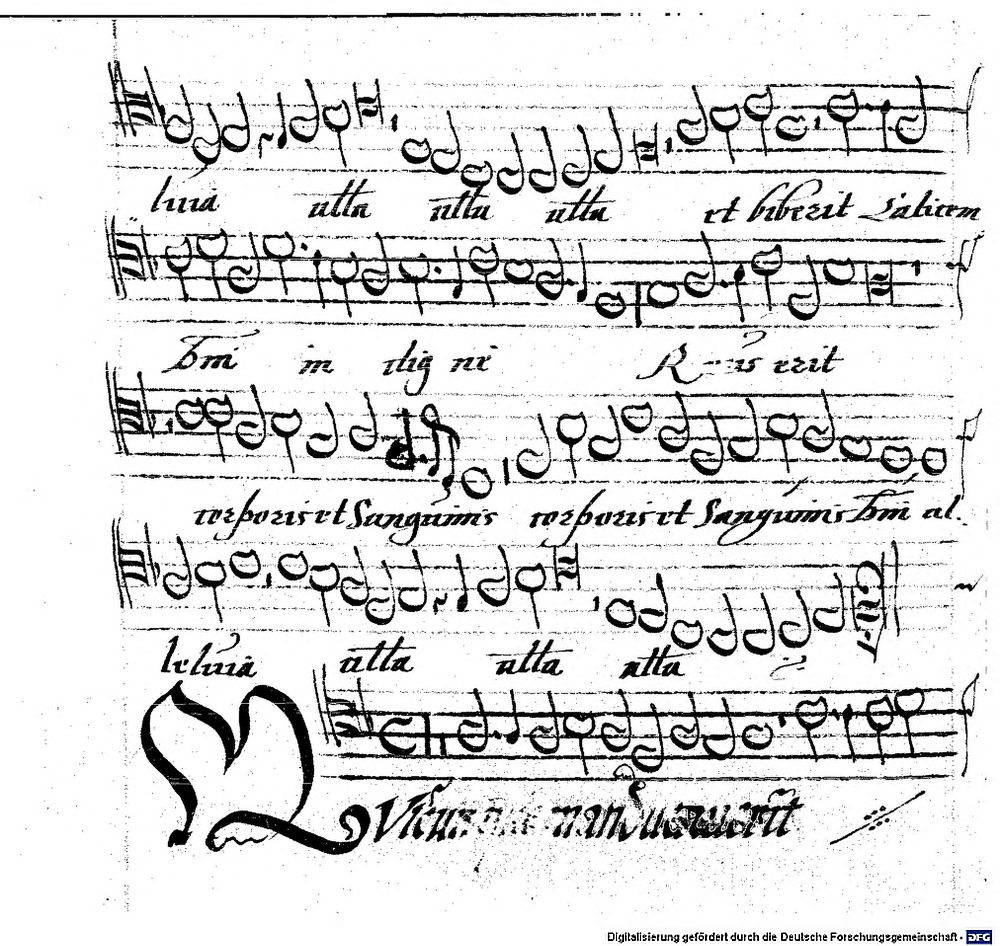 luia alla alla alla et biberit Calicem
Dni in dig ne Reus erit
corporis et Sanguinis corporis et Sanguinis Dni al.
leluia alla alla alla
Vicunque manducaverit
Digitalisierung gefördert durch die Deutsche Forschungsgemeinschaft - DFG